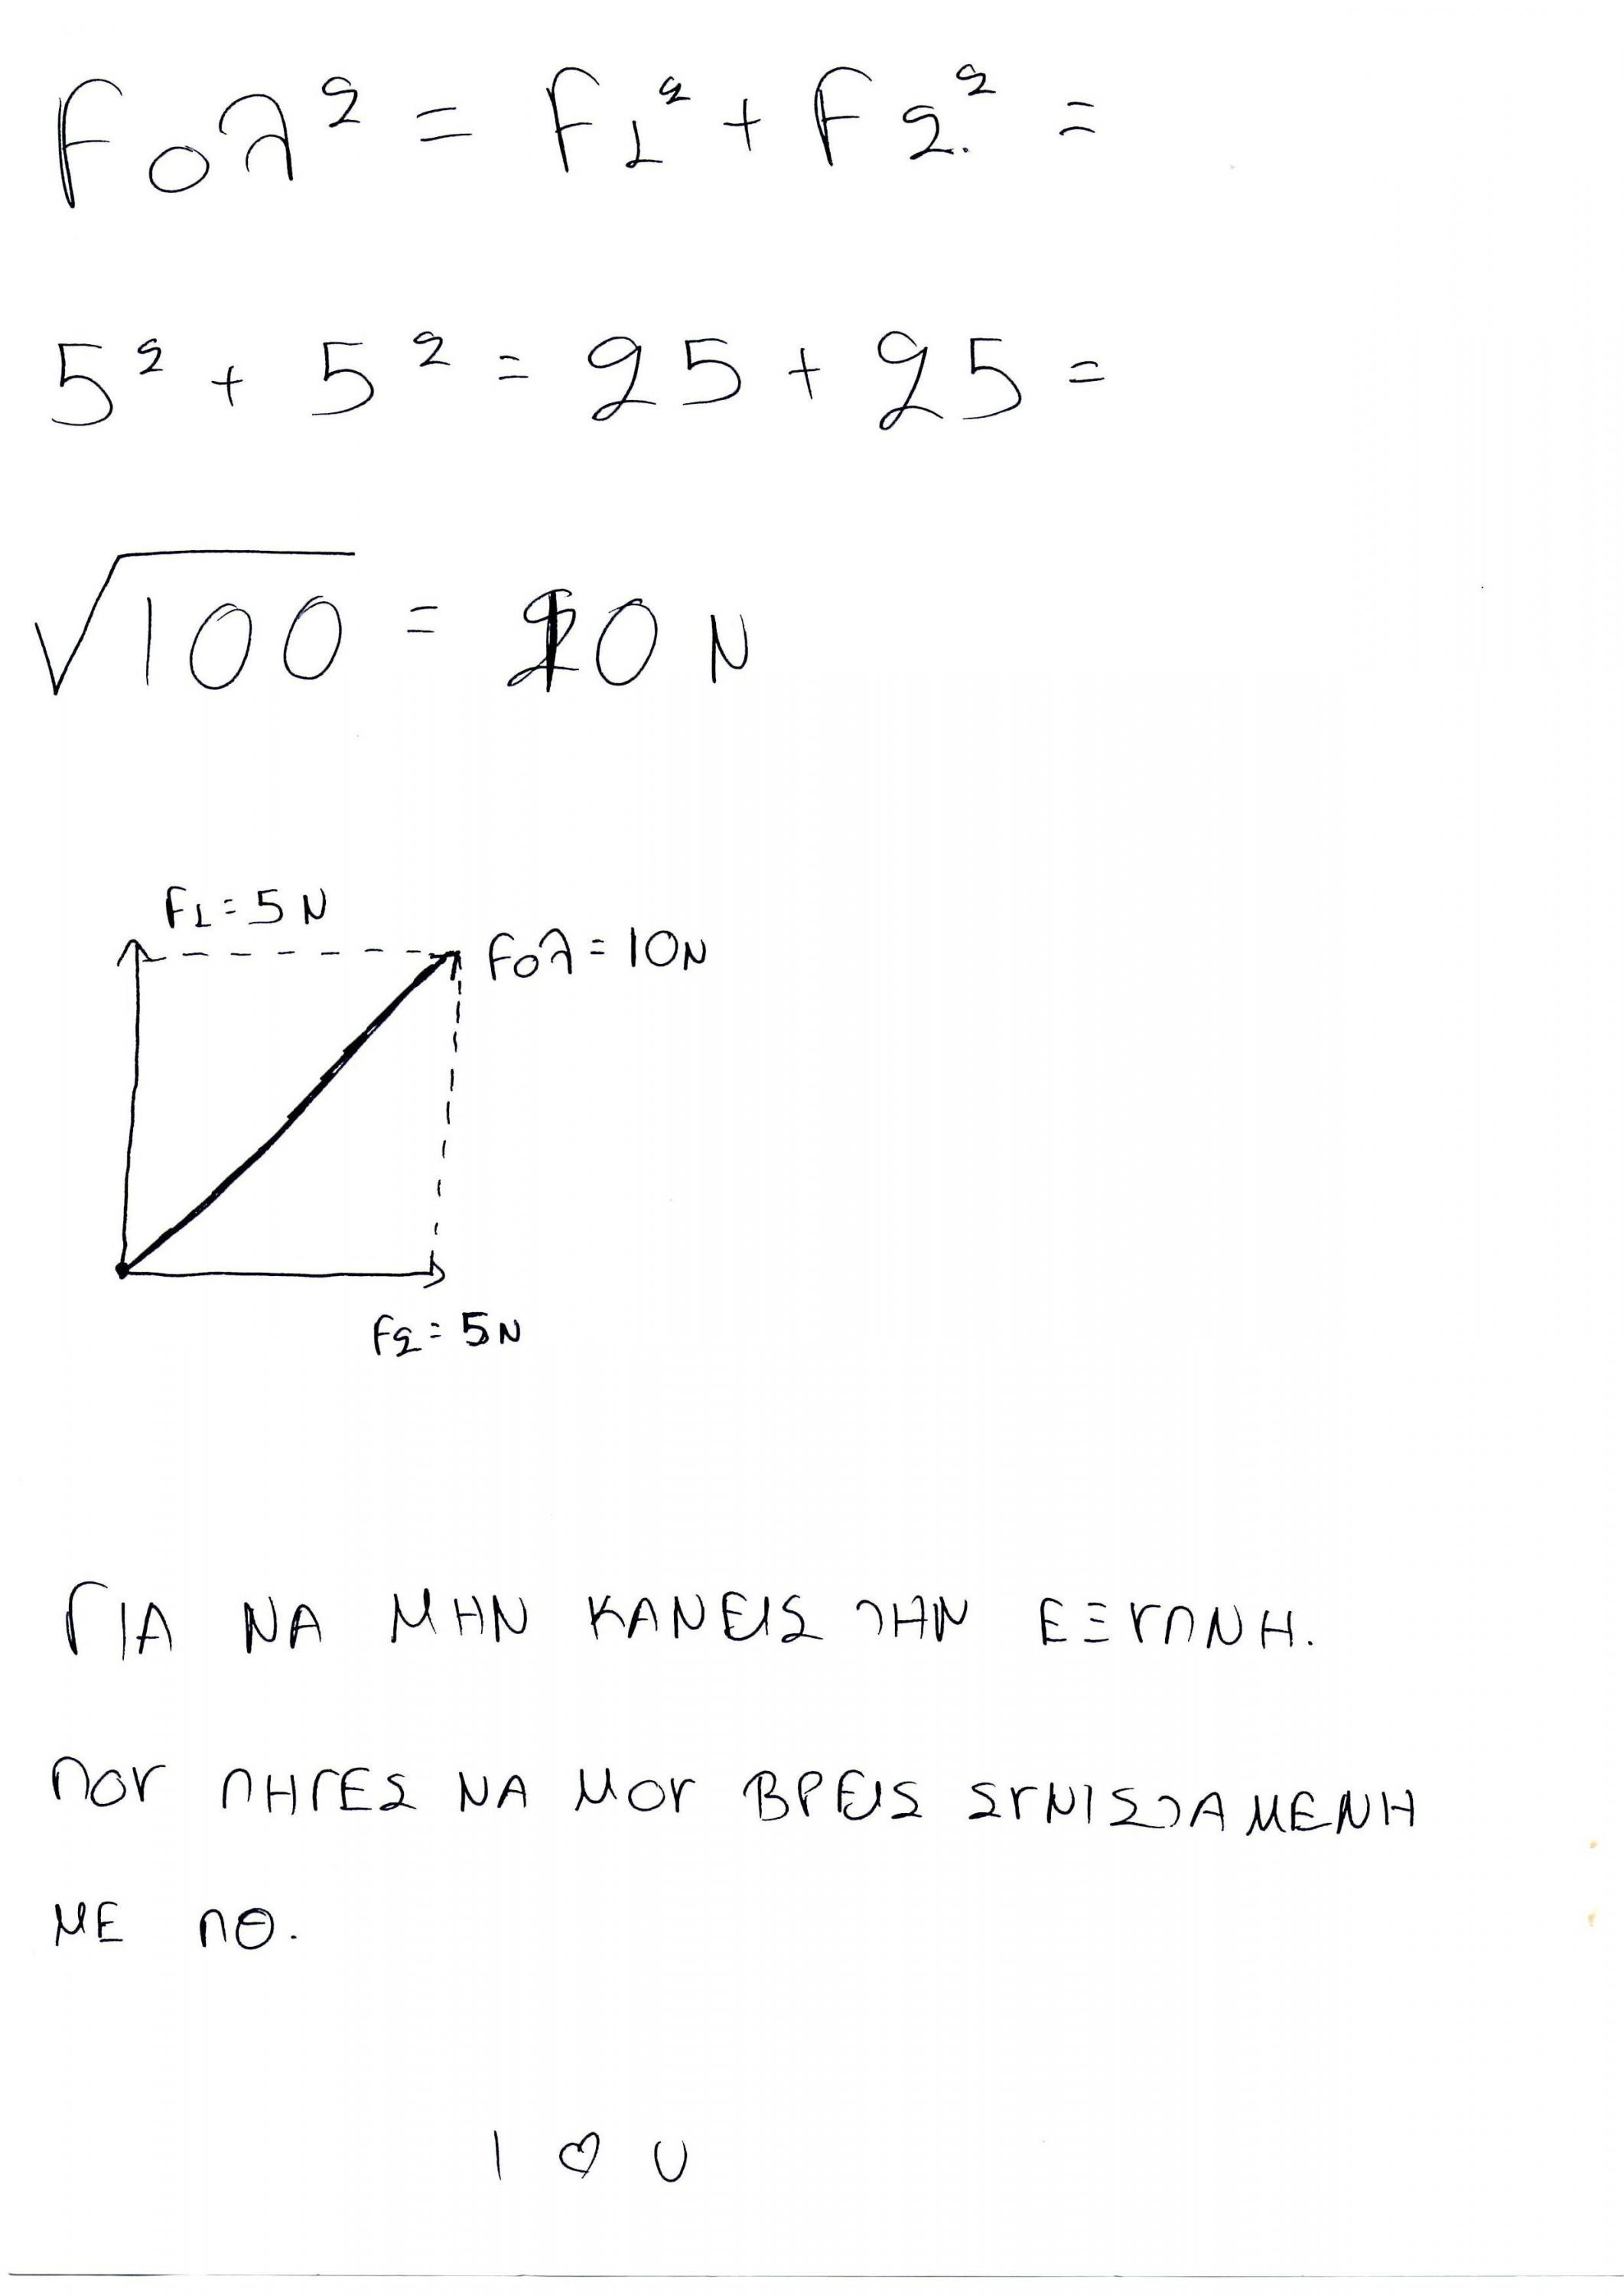 Fολ² = F1² + F2.² =
5² + 5² = 25 + 25 =
√100 = 10 N
F1 = 5 N
Fολ = 10 N
F2 = 5 N
ΓΙΑ ΝΑ ΜΗΝ ΚΑΝΕΙΣ ΤΗΝ ΕΞΥΠΝΗ.
ΠΟΥ ΠΗΓΕΣ ΝΑ ΜΟΥ ΒΡΕΙΣ ΣΥΝΙΣΤΑΜΕΝΗ
ΜΕ ΠΘ.
I ♡ U